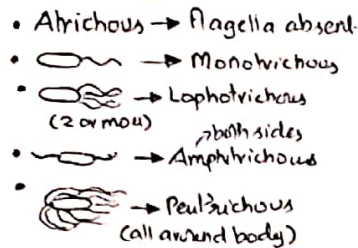 • Atrichous → Flagella absent.
• → Monotrichous
• → Lophotrichous
(2 or more)
both sides
• → Amphitrichous
• → Peritrichous
(all around body)